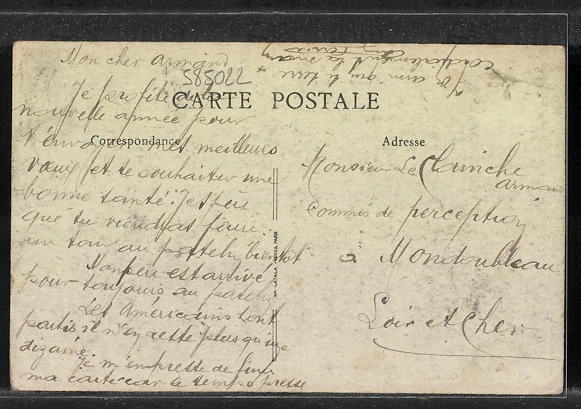 Mon cher Armand
585022
CARTE POSTALE
Je profite de la
nouvelle année pour
Correspondance
t'envoyer mes meilleurs
vœux et te souhaiter une
bonne santé. J'espère
que tu viendras faire
un tour au patelin bientôt
est arrivé
pour toujours au patelin
Les Américains sont
partis il n'en reste plus qu'une
dizaine.
Je m'empresse de finir
ma carte car le temps presse
ton ami qui te serre
cordialement la main
Adresse
Monsieur Le Clainche
Armand
commis de perception
à Mondoubleau
Loir et Cher